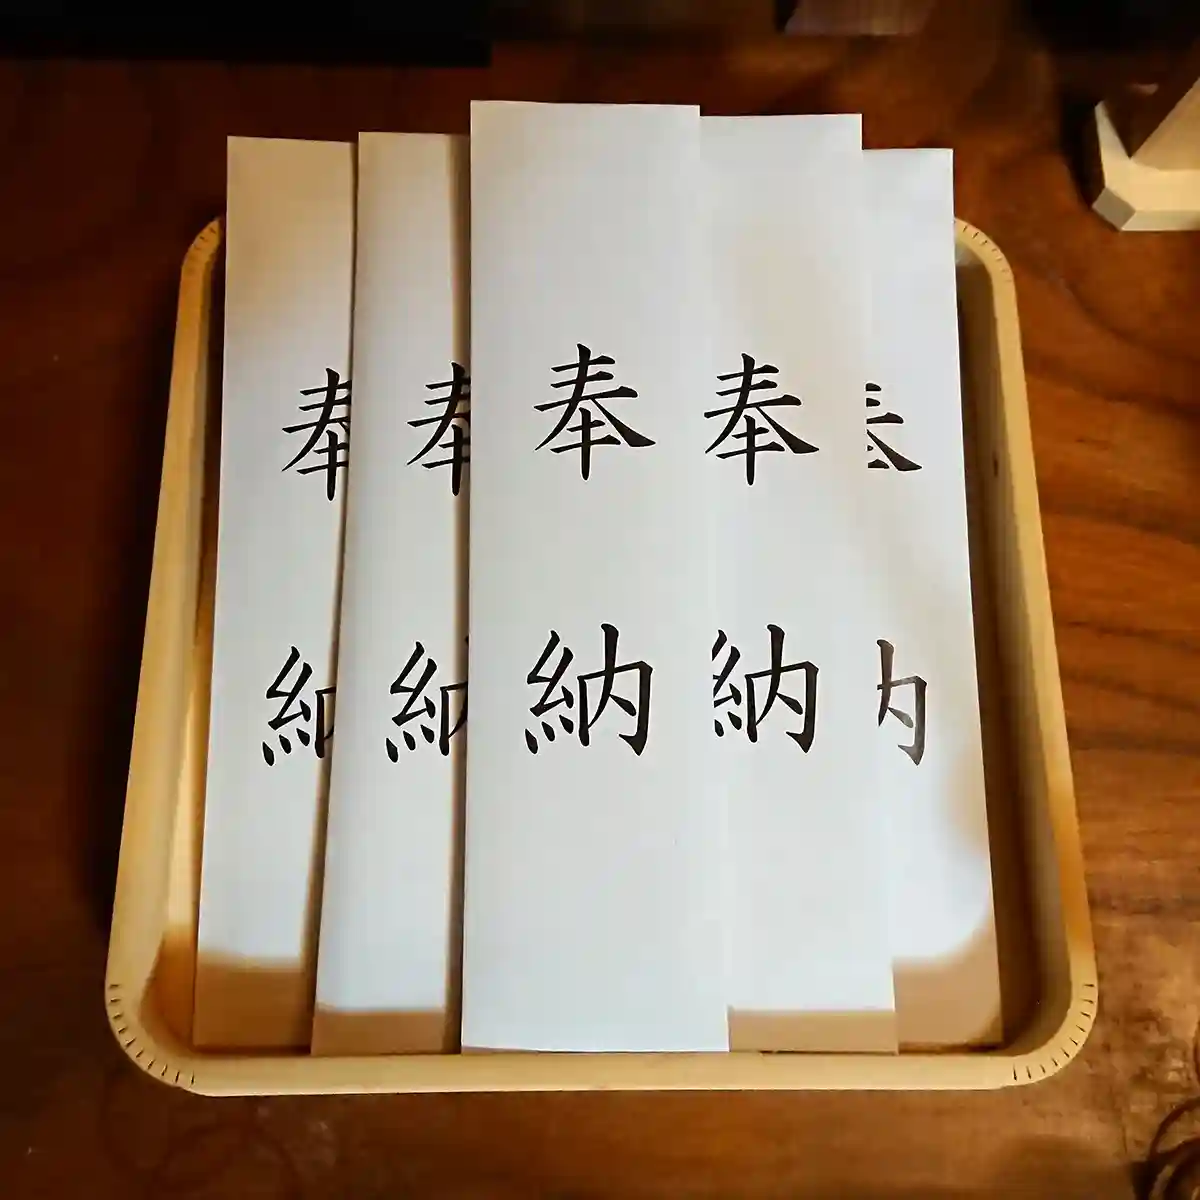 奉納
奉納
奉納
奉納